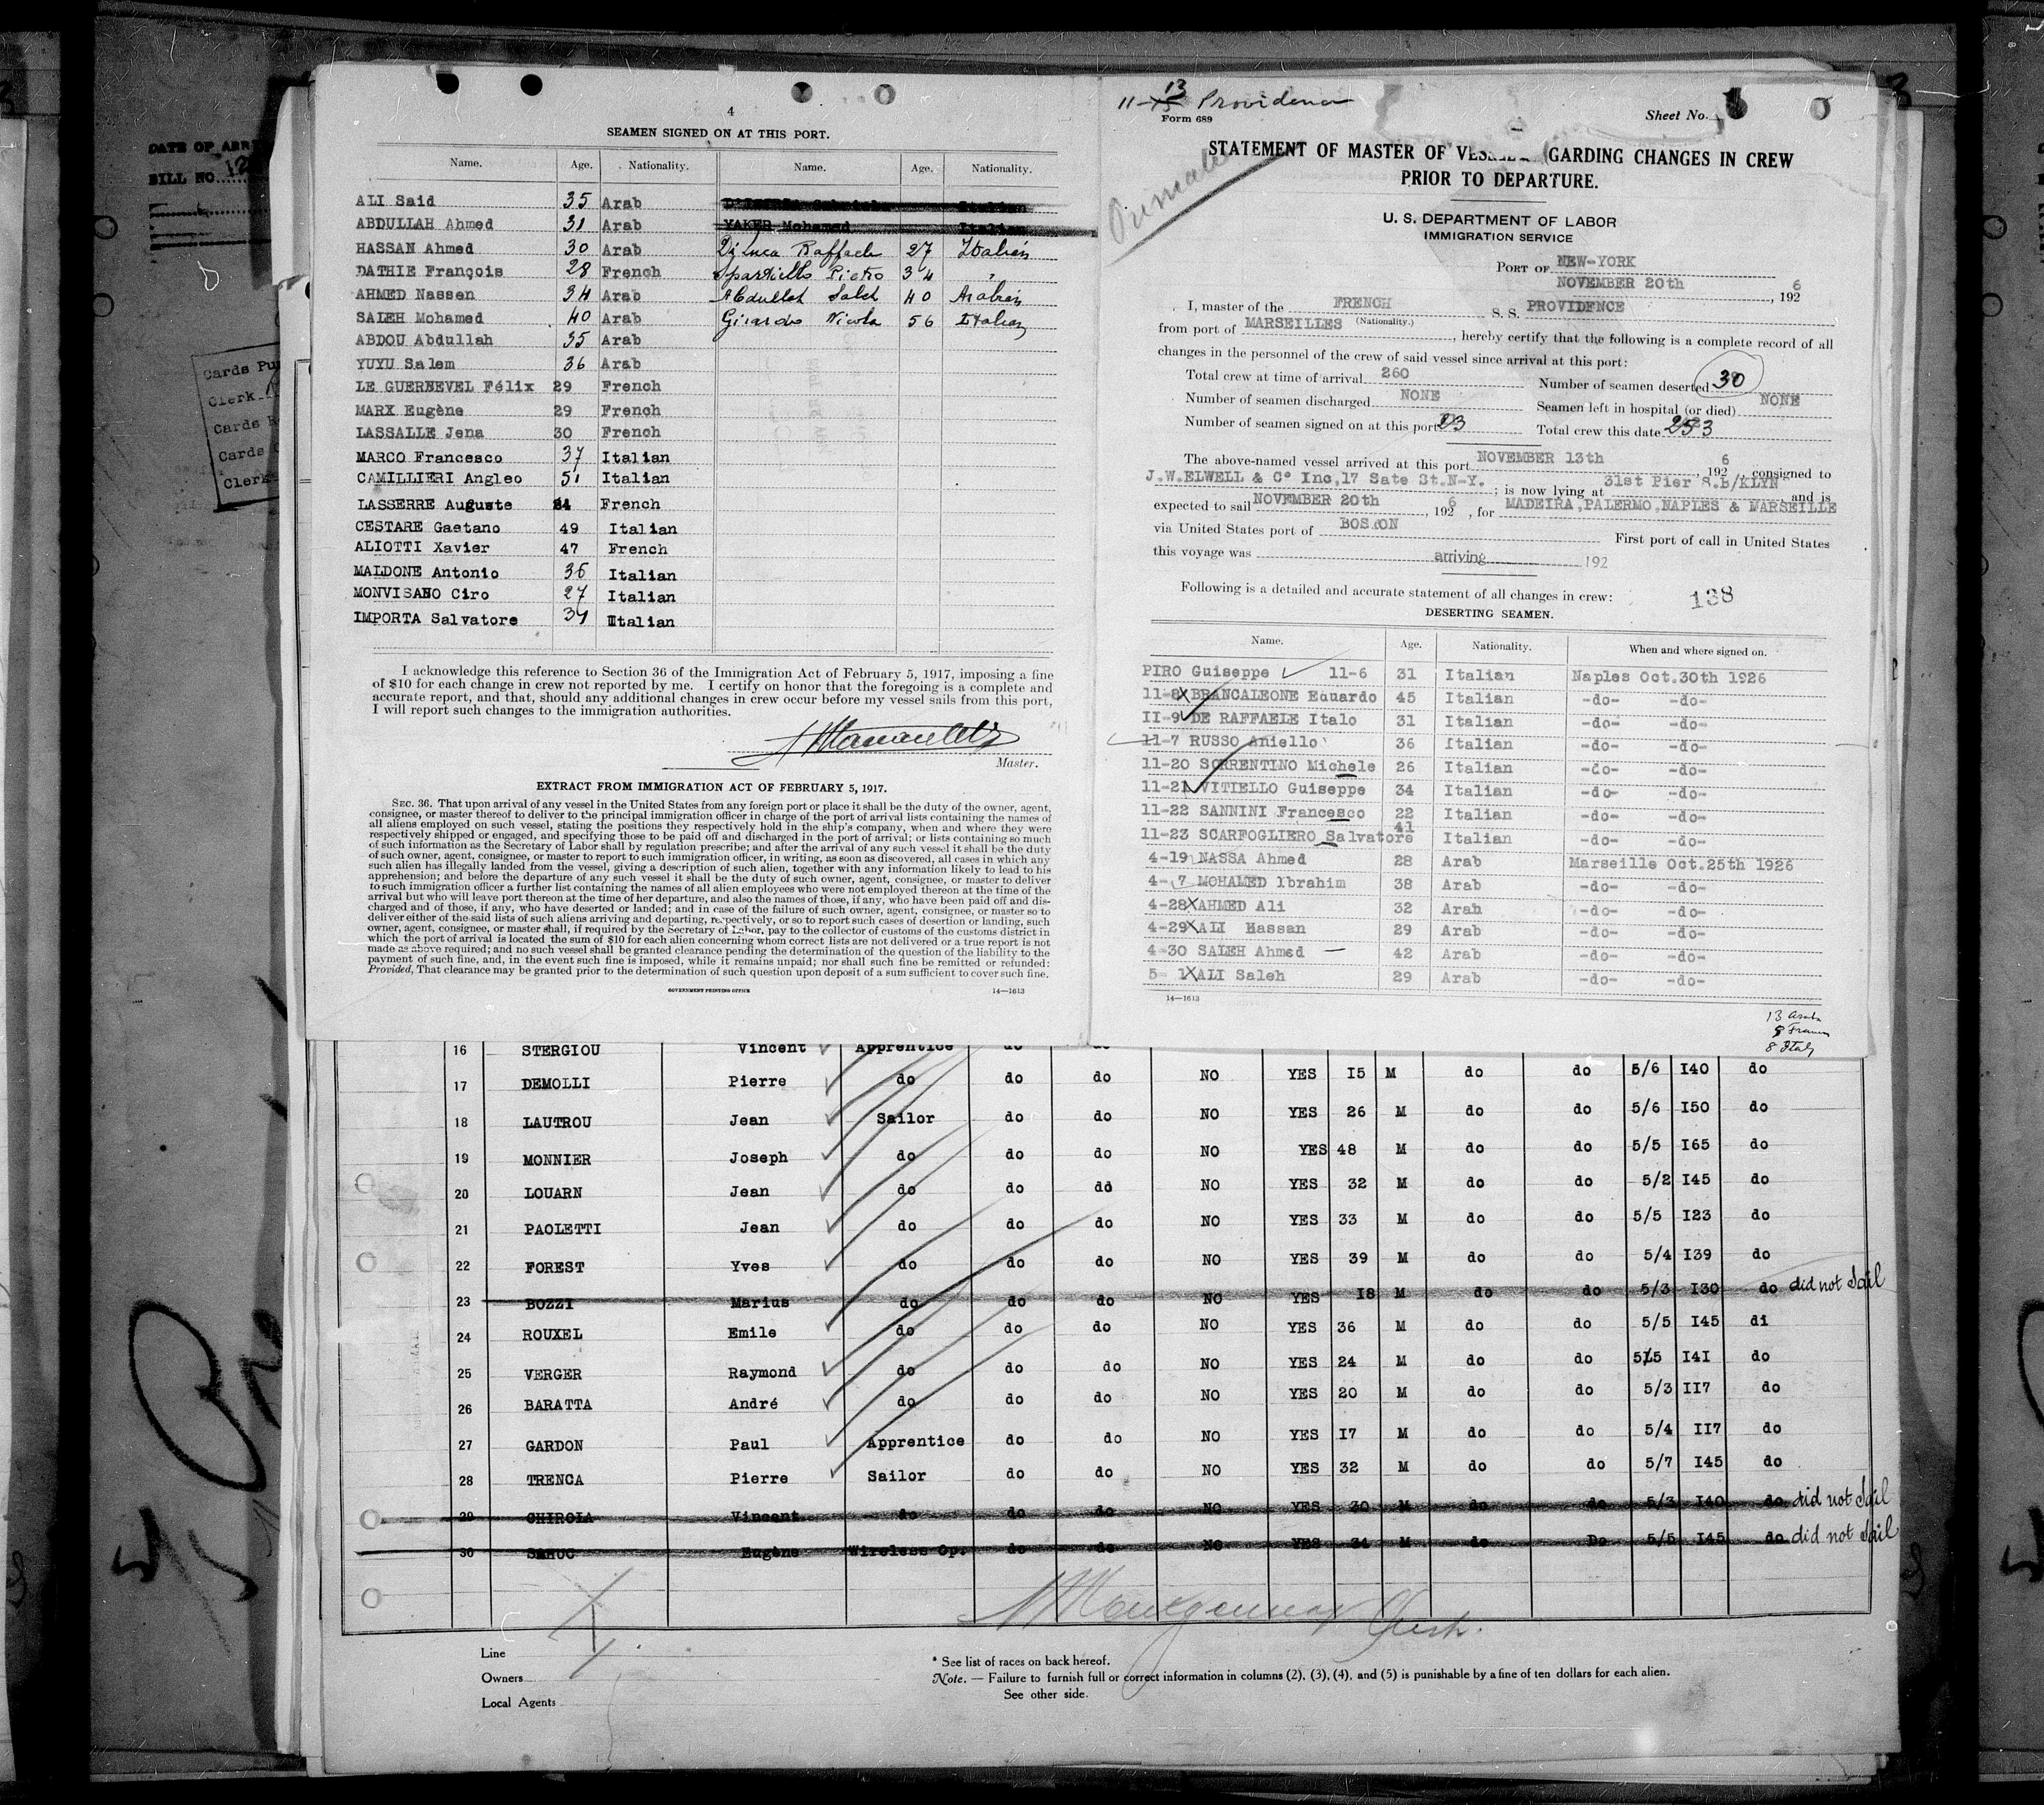 DATE OF ARR
BILL NO. 12
Cards Pu
Clerk
Cards
Cards
Clerk
4
SEAMEN SIGNED ON AT THIS PORT.
Name. Age. Nationality. Name. Age. Nationality.
ALI Said 35 Arab Italian
ABDULLAH Ahmed 31 Arab YAKER Mohamed Italian
HASSAN Ahmed 30 Arab Di Luca Raffaele 27 Italien
DATHIE François 28 French Spardiello Pietro 34 "
AHMED Nassen 34 Arab Abdullah Saleh 40 Arabien
SALEH Mohamed 40 Arab Girardo Nicola 56 Italien
ABDOU Abdullah 35 Arab
YUYU Salem 36 Arab
LE GUERNEVEL Félix 29 French
MARX Eugène 29 French
LASSALLE Jena 30 French
MARCO Francesco 37 Italian
CAMILLIERI Angleo 51 Italian
LASSERRE Auguste French
CESTARE Gaetano 49 Italian
ALIOTTI Xavier 47 French
MALDONE Antonio 36 Italian
MONVISANO Ciro 27 Italian
IMPORTA Salvatore 34 Italian
I acknowledge this reference to Section 36 of the Immigration Act of February 5, 1917, imposing a fine
of $10 for each change in crew not reported by me. I certify on honor that the foregoing is a complete and
accurate report, and that, should any additional changes in crew occur before my vessel sails from this port,
I will report such changes to the immigration authorities.
Master.
EXTRACT FROM IMMIGRATION ACT OF FEBRUARY 5, 1917.
SEC. 36. That upon arrival of any vessel in the United States from any foreign port or place it shall be the duty of the owner, agent,
consignee, or master thereof to deliver to the principal immigration officer in charge of the port of arrival lists containing the names of
all aliens employed on such vessel, stating the positions they respectively hold in the ship's company, when and where they were
respectively shipped or engaged, and specifying those to be paid off and discharged in the port of arrival; or lists containing so much
of such information as the Secretary of Labor shall by regulation prescribe; and after the arrival of any such vessel it shall be the duty
of such owner, agent, consignee, or master to report to such immigration officer, in writing, as soon as discovered, all cases in which any
such alien has illegally landed from the vessel, giving a description of such alien, together with any information likely to lead to his
apprehension; and before the departure of any such vessel it shall be the duty of such owner, agent, consignee, or master to deliver
to such immigration officer a further list containing the names of all alien employees who were not employed thereon at the time of the
arrival but who will leave port thereon at the time of her departure, and also the names of those, if any, who have been paid off and dis-
charged and of those, if any, who have deserted or landed; and in case of the failure of such owner, agent, consignee, or master so to
deliver either of the said lists of such aliens arriving and departing, respectively, or so to report such cases of desertion or landing, such
owner, agent, consignee, or master shall, if required by the Secretary of Labor, pay to the collector of customs of the customs district in
which the port of arrival is located the sum of $10 for each alien concerning whom correct lists are not delivered or a true report is not
made as above required; and no such vessel shall be granted clearance pending the determination of the question of the liability to the
payment of such fine, and, in the event such fine is imposed, while it remains unpaid; nor shall such fine be remitted or refunded:
Provided, That clearance may be granted prior to the determination of such question upon deposit of a sum sufficient to cover such fine.
GOVERNMENT PRINTING OFFICE 14—1613
13
11-15 Providence
Form 689 Sheet No.
STATEMENT OF MASTER OF VESSEL GARDING CHANGES IN CREW
PRIOR TO DEPARTURE.
U. S. DEPARTMENT OF LABOR
IMMIGRATION SERVICE
PORT OF NEW-YORK
NOVEMBER 20th, 192 6
I, master of the FRENCH S. S. PROVIDENCE
(Nationality.)
from port of MARSEILLES, hereby certify that the following is a complete record of all
changes in the personnel of the crew of said vessel since arrival at this port:
Total crew at time of arrival 260 Number of seamen deserted 30
Number of seamen discharged NONE Seamen left in hospital (or died) NONE
Number of seamen signed on at this port 23 Total crew this date 253
The above-named vessel arrived at this port NOVEMBER 13th 192 6 consigned to
J.W.ELWELL & C° Inc,17 Sate St.N-Y. ; is now lying at 31st Pier S.B/KLYN, and is
expected to sail NOVEMBER 20th, 192 6, for MADEIRA,PALERMO,NAPLES & MARSEILLE
via United States port of BOSTON First port of call in United States
this voyage was arriving 192
Following is a detailed and accurate statement of all changes in crew: 138
DESERTING SEAMEN.
Name. Age. Nationality. When and where signed on.
PIRO Guiseppe 11-6 31 Italian Naples Oct.30th 1926
11-8 BRANCALEONE Eduardo 45 Italian -do- -do-
II-9 DE RAFFAELE Italo 31 Italian -do- -do-
11-7 RUSSO Aniello 36 Italian -do- -do-
11-20 SORRENTINO Michele 26 Italian -do- -do-
11-21 VITIELLO Guiseppe 34 Italian -do- -do-
11-22 SANNINI Francesco 22 Italian -do- -do-
11-23 SCARFOGLIERO Salvatore 41 Italian -do- -do-
4-19 NASSA Ahmed 28 Arab Marseille Oct.25th 1926
4- 7 MOHAMED Ibrahim 38 Arab -do- -do-
4-28 AHMED Ali 32 Arab -do- -do-
4-29 ALI Hassan 29 Arab -do- -do-
4-30 SALEH Ahmed 42 Arab -do- -do-
5- 1 ALI Saleh 29 Arab -do- -do-
14—1613
13 Arabs
8 Italy
16 STERGIOU Vincent Apprentice do do
17 DEMOLLI Pierre do do do NO YES I5 M do do 5/6 I40 do
18 LAUTROU Jean Sailor do do NO YES 26 M do do 5/6 I50 do
19 MONNIER Joseph do do do NO YES 48 M do do 5/5 I65 do
20 LOUARN Jean do do do NO YES 32 M do do 5/2 I45 do
21 PAOLETTI Jean do do do NO YES 33 M do do 5/5 I23 do
22 FOREST Yves do do do NO YES 39 M do do 5/4 I39 do
23 BOZZI Marius do do do NO YES I8 M do do 5/3 I30 do did not Sail
24 ROUXEL Emile do do do NO YES 36 M do do 5/5 I45 di
25 VERGER Raymond do do do NO YES 24 M do do 5/5 I4I do
26 BARATTA André do do do NO YES 20 M do do 5/3 II7 do
27 GARDON Paul Apprentice do do NO YES I7 M do do 5/4 II7 do
28 TRENCA Pierre Sailor do do NO YES 32 M do do 5/7 I45 do
29 CHIROLA Vincent do do do NO YES 30 M do do 5/3 I40 do did not Sail
30 Eugène Wireless Op. do do NO YES 34 M do Do 5/5 I45 do did not Sail
Line
Owners
Local Agents
* See list of races on back hereof.
Note. — Failure to furnish full or correct information in columns (2), (3), (4), and (5) is punishable by a fine of ten dollars for each alien.
See other side.